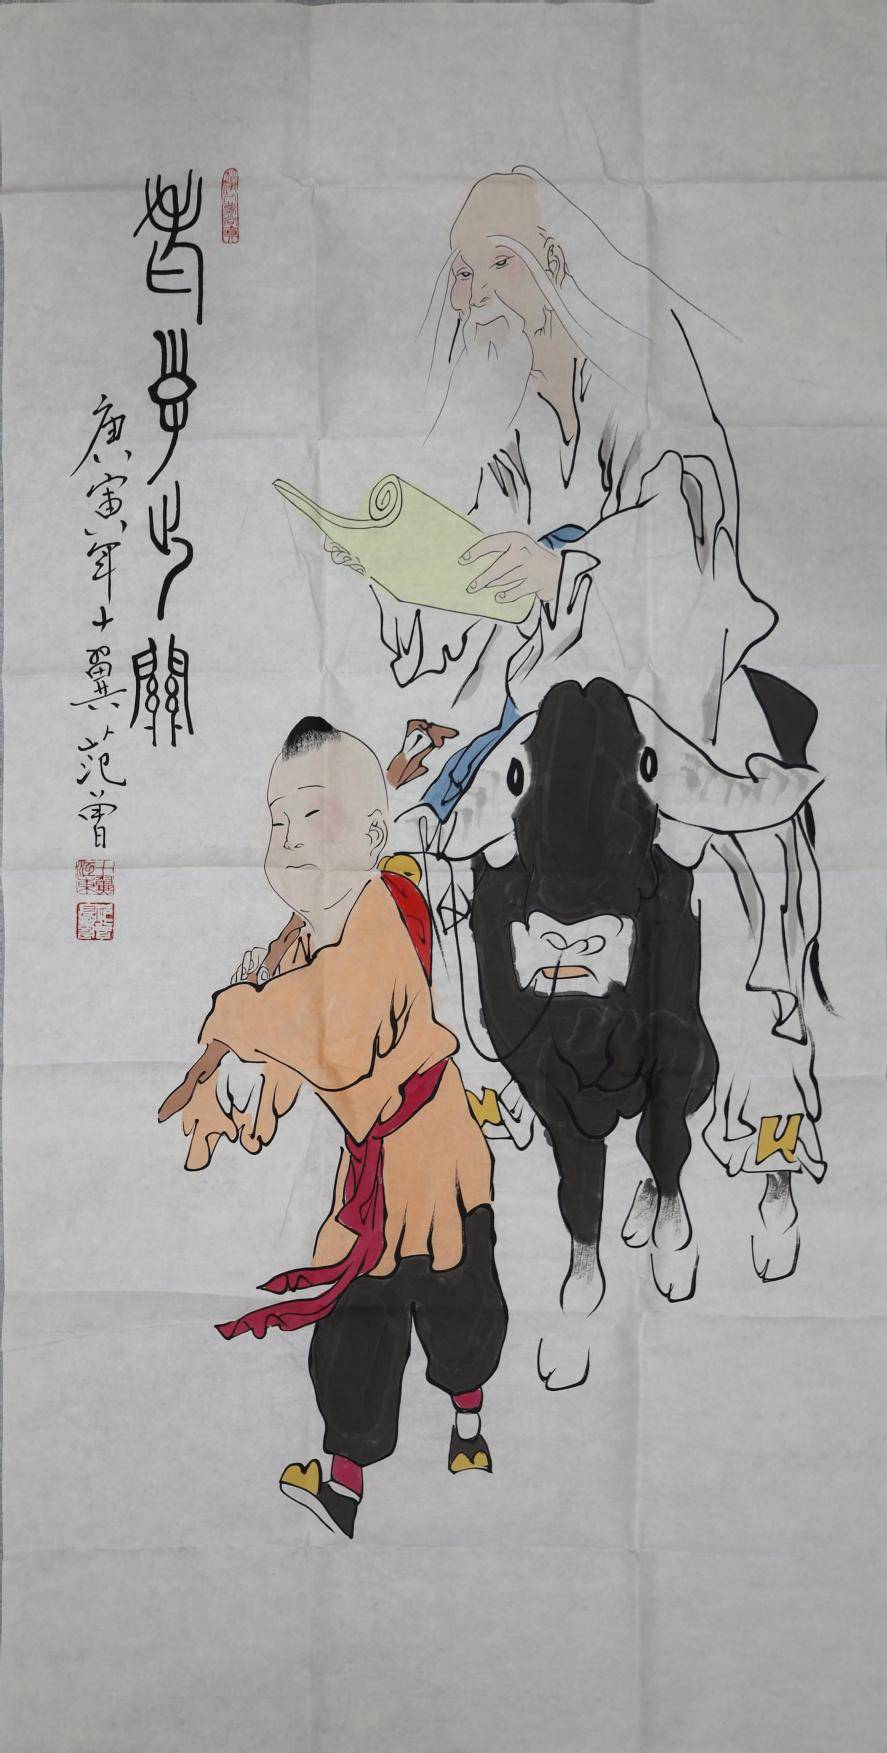 老子出關
庚寅年十翼范曾